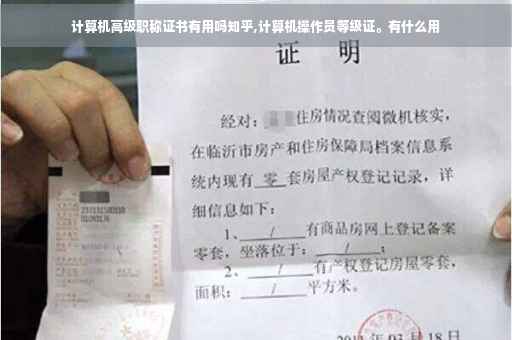 计算机高级职称证书有用吗知乎,计算机操作员等级证。有什么用
证 明
经对: 住房情况查阅微机核实,
在临沂市房产和住房保障局档案信息系
统内现有 零 套房屋产权登记记录,详
细信息如下:
1、 / 有商品房网上登记备案
零套,坐落位于: / ;
2、 / 有产权登记房屋零套,
面积: / 平方米。
03 月 18 日